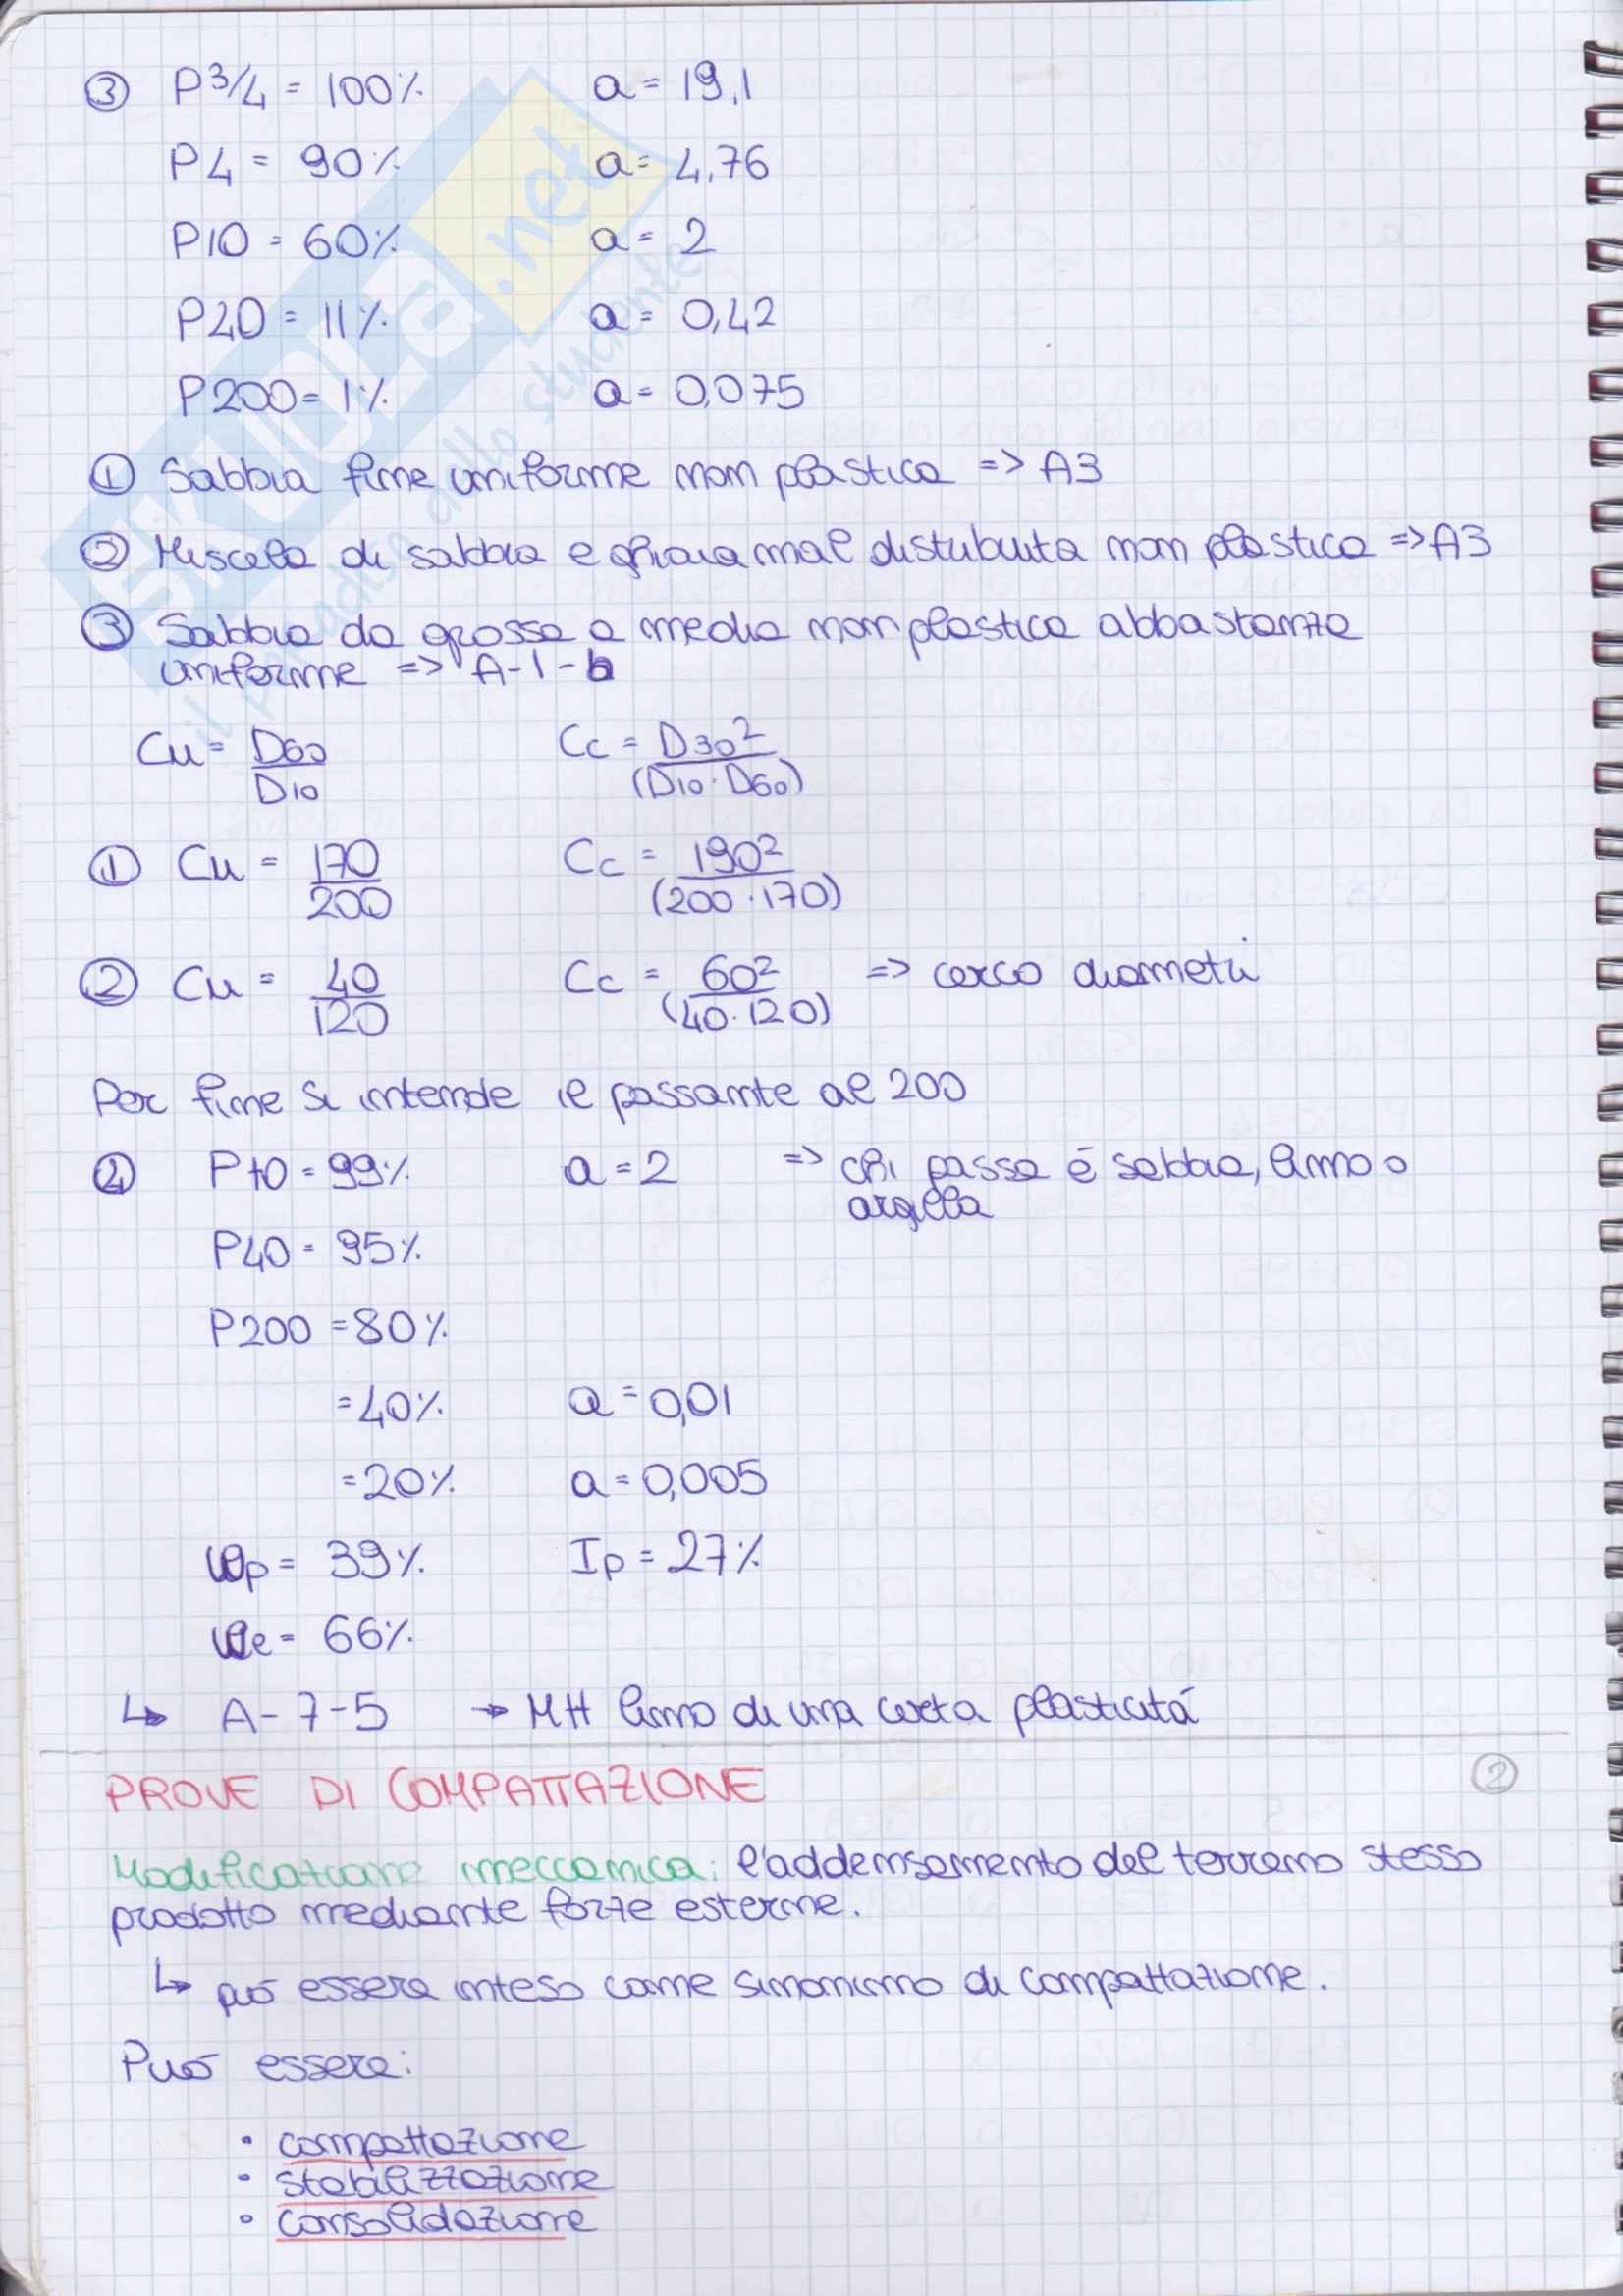 ③ P3/4 = 100% a = 19,1
P4 = 90% a = 4,76
P10 = 60% a = 2
P40 = 11% a = 0,42
P200 = 1% a = 0,075
① Sabbia fine uniforme non plastica => A3
② Miscela di sabbia e ghiaia mal distribuita non plastica => A3
③ Sabbia da grossa a media non plastica abbastanza
uniforme => A-1-b
Cu = D60/D10 Cc = D30²/(D10·D60)
① Cu = 170/200 Cc = 190²/(200·170)
② Cu = 40/120 Cc = 60²/(40·120) => cerco diametri
Per fine si intende il passante al 200
④ P10 = 99% a = 2 => chi passa è sabbia, limo o
argilla
P40 = 95%
P200 = 80%
= 40% a = 0,01
= 20% a = 0,005
Wp = 39% Ip = 27%
Wl = 66%
↳ A-7-5 → MH limo di una certa plasticità
PROVE DI COMPATTAZIONE ②
Modificazione meccanica: l'addensamento del terreno stesso
prodotto mediante forze esterne.
↳ può essere inteso come sinonimo di compattazione.
Può essere:
• compattazione
• stabilizzazione
• consolidazione
SKUOLA.net
il paradiso dello studente